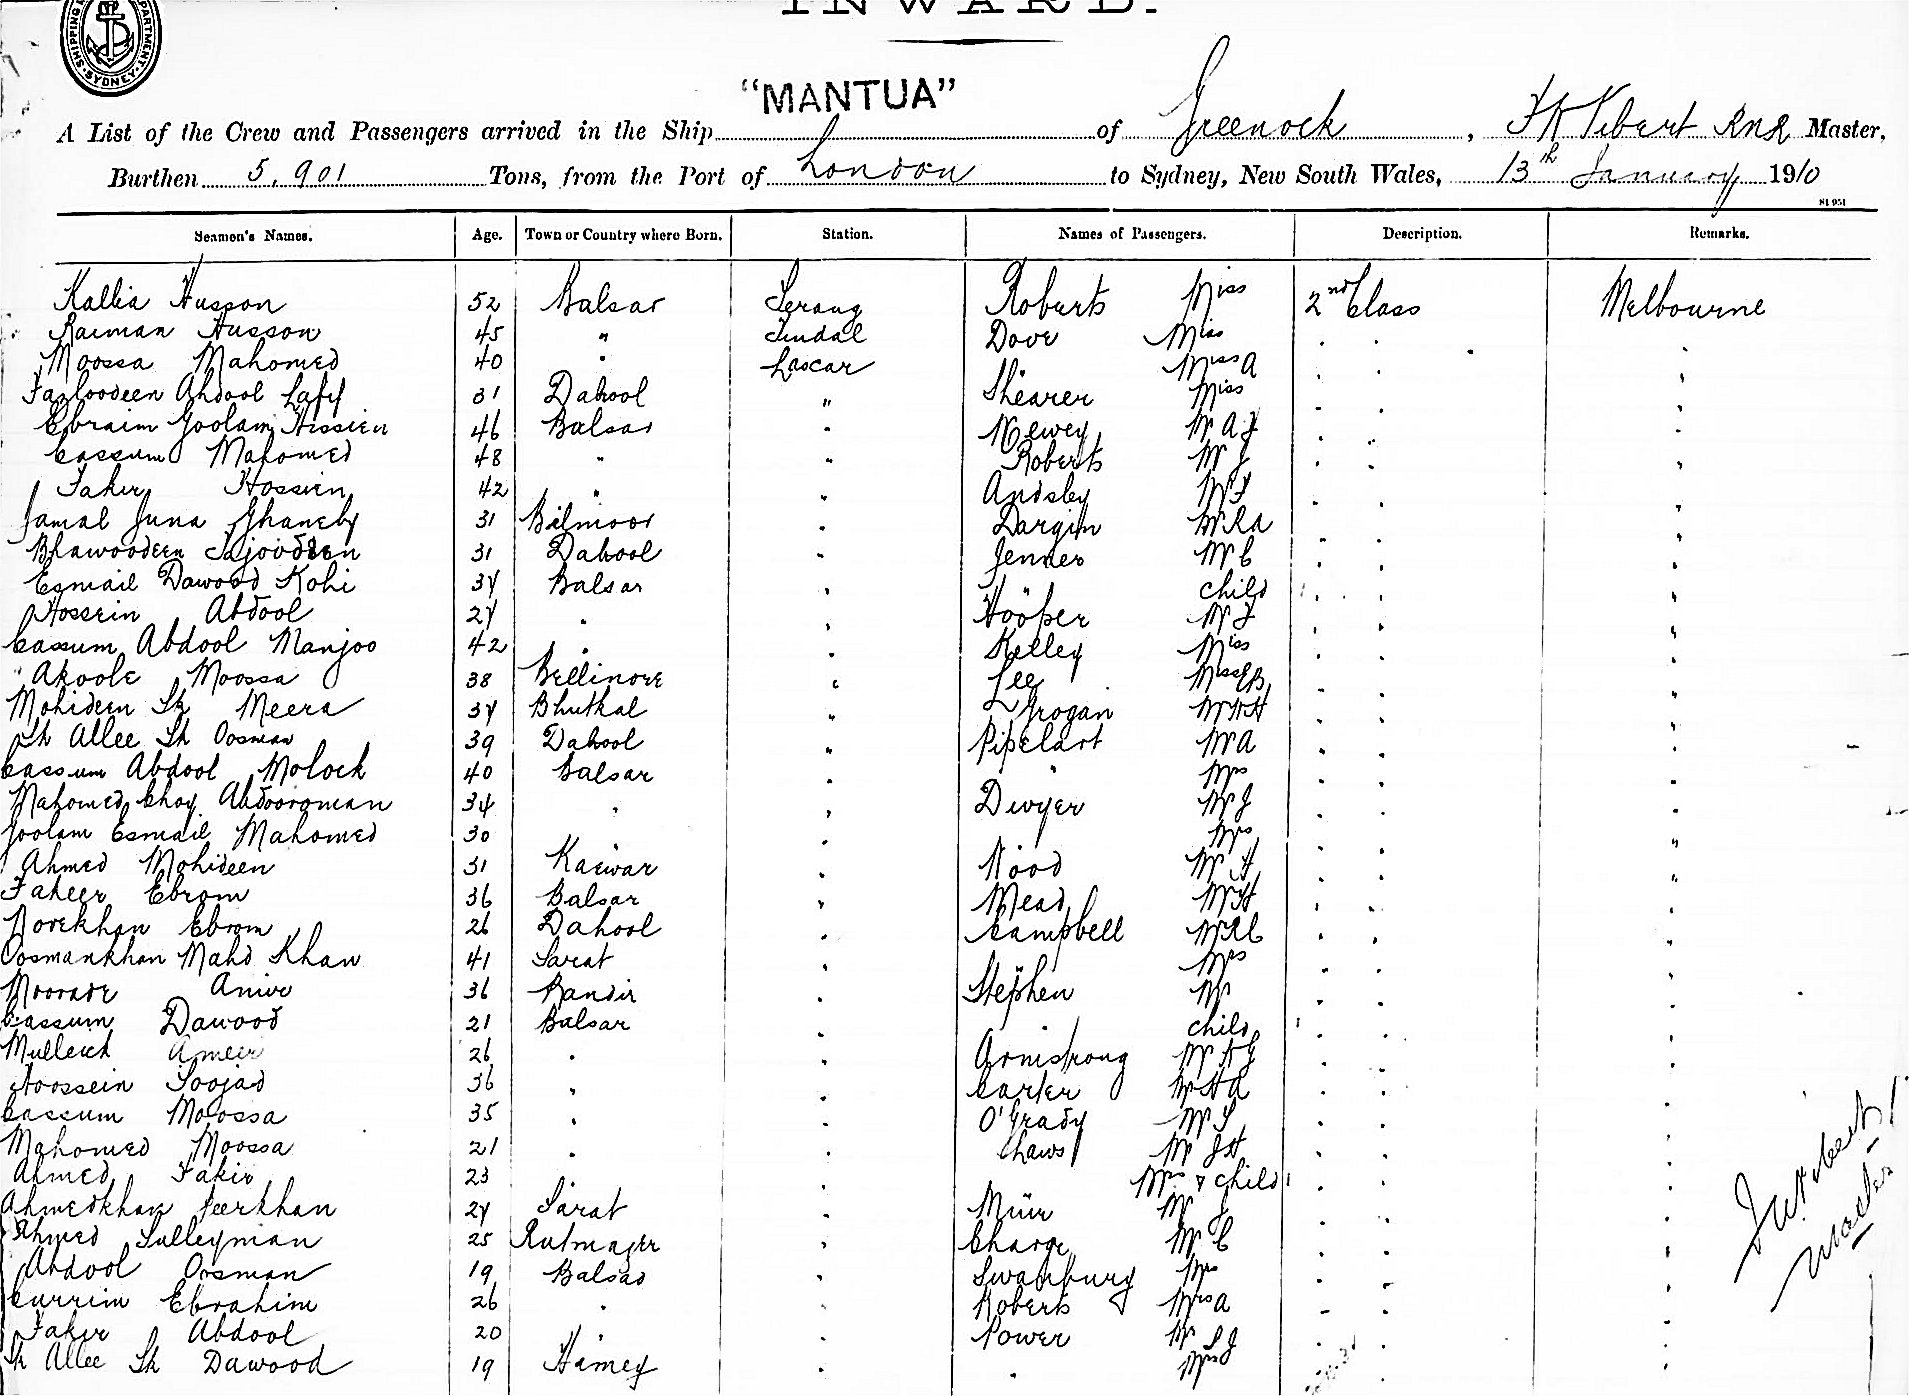 INWARD.
SHIPPING DEPARTMENT SYDNEY
"MANTUA"
A List of the Crew and Passengers arrived in the Ship of Greenock, Master,
Burthen 5,901 Tons, from the Port of London to Sydney, New South Wales, 13th January 1910
Seamen's Names. Age. Town or Country where Born. Station. Names of Passengers. Description. Remarks.
Kallia Husson 52 Balsar Serang Roberts Miss 2nd Class Melbourne
Raiman Husson 45 " Tindal Dove Miss
Moossa Mahomed 40 " Lascar " Miss A
Fazloodeen Abdool 31 Dabool " Shearer Miss
Ebraim Goolam Hissien 46 Balsar " Newey Mr A J
Cassum Mahomed 48 " " Roberts Mr J
Fakir Hossien 42 " " Mr F
Jamal Juna 31 Bilmoor " Dargin Mr R A
31 Dabool " Jenner Mr C
Esmail Dawood Kohi 37 Balsar " " Child
Hossein Abdool 27 " " Hooper Mr J
Cassum Abdool Manjoo 42 " " Kelley Miss
Akoole Moossa 38 Bellinore " Lee Miss
Mohideen Sk Meera 37 Bhutkal " Grogan Mr
Sk Allee Sk Oosman 39 Dabool " Pipelart Mr A
Cassum Abdool Molock 40 Balsar " " Mrs
Mahomed Choy Abdooroman 34 " " Dwyer Mr J
Goolam Esmail Mahomed 30 " " " Mrs
Ahmed Mohideen 31 Karwar " Wood Mr H
Fakeer Ebrom 36 Balsar " Mead Mr H
Norekhan Ebrom 26 Dabool " Campbell Mr
Oosmankhan Mahd Khan 41 Sarat " " Mrs
36 Bandir " Stephen Mr
Cassum Dawood 21 Balsar " " Child
Ameer 26 " " Armstrong Mr A G
Hoossein Soojad 36 " " Carter Mr H A
Cassum Moossa 35 " " O'Grady Mr S
Mahomed Moossa 21 " " Chaws Mr J H
Ahmed Fakir 23 " " " Mrs & Child
Ahmedkhan Peerkhan 27 Sarat " Muir Mr J
Ahmed Sulleyman 25 Rutnager " Charge Mr C
Abdool Oosman 19 Balsar " Swanbury Mrs
Currim Ebrahim 26 " " Roberts Mrs A
Fakir Abdool 20 " " Power Mr S J
Sk Allee Sk Dawood 19 Hamey " " Mrs
Master